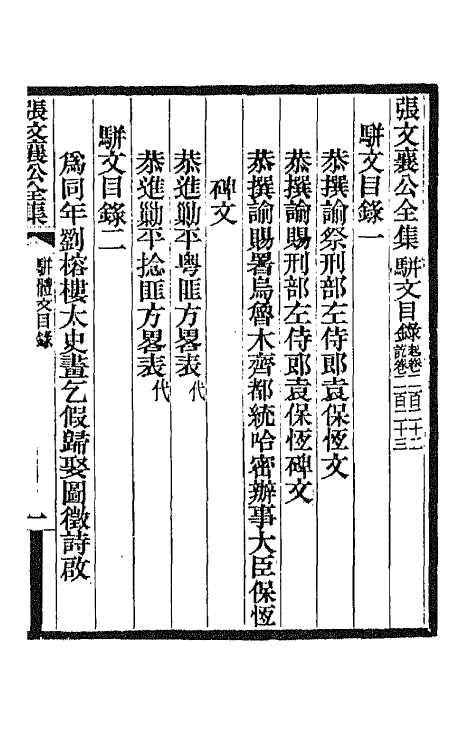 張文襄公全集 駢文目錄 起卷二百二十二 訖卷二百二十三
駢文目錄一
恭撰諭祭刑部左侍郎袁保恆文
恭撰諭賜刑部左侍郎袁保恆碑文
恭撰諭賜署烏魯木齊都統哈密辦事大臣保恆
碑文
恭進勦平粵匪方畧表 代
恭進勦平捻匪方畧表 代
駢文目錄二
爲同年劉榕樓太史畫乞假歸娶圖徵詩啟
張文襄公全集 駢體文目錄 一